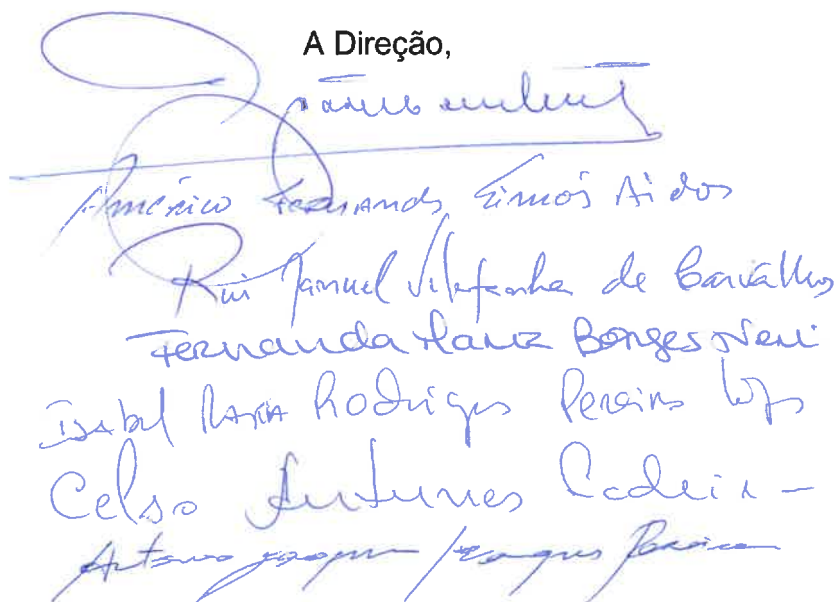 A Direção,
Américo Fernando Simões Aidos
Rui Manuel de Carvalho
Fernanda Maria Borges
Isabel Maria Rodrigues Pereira Lopes
Celso Antunes
António Joaquim Marques Pereira